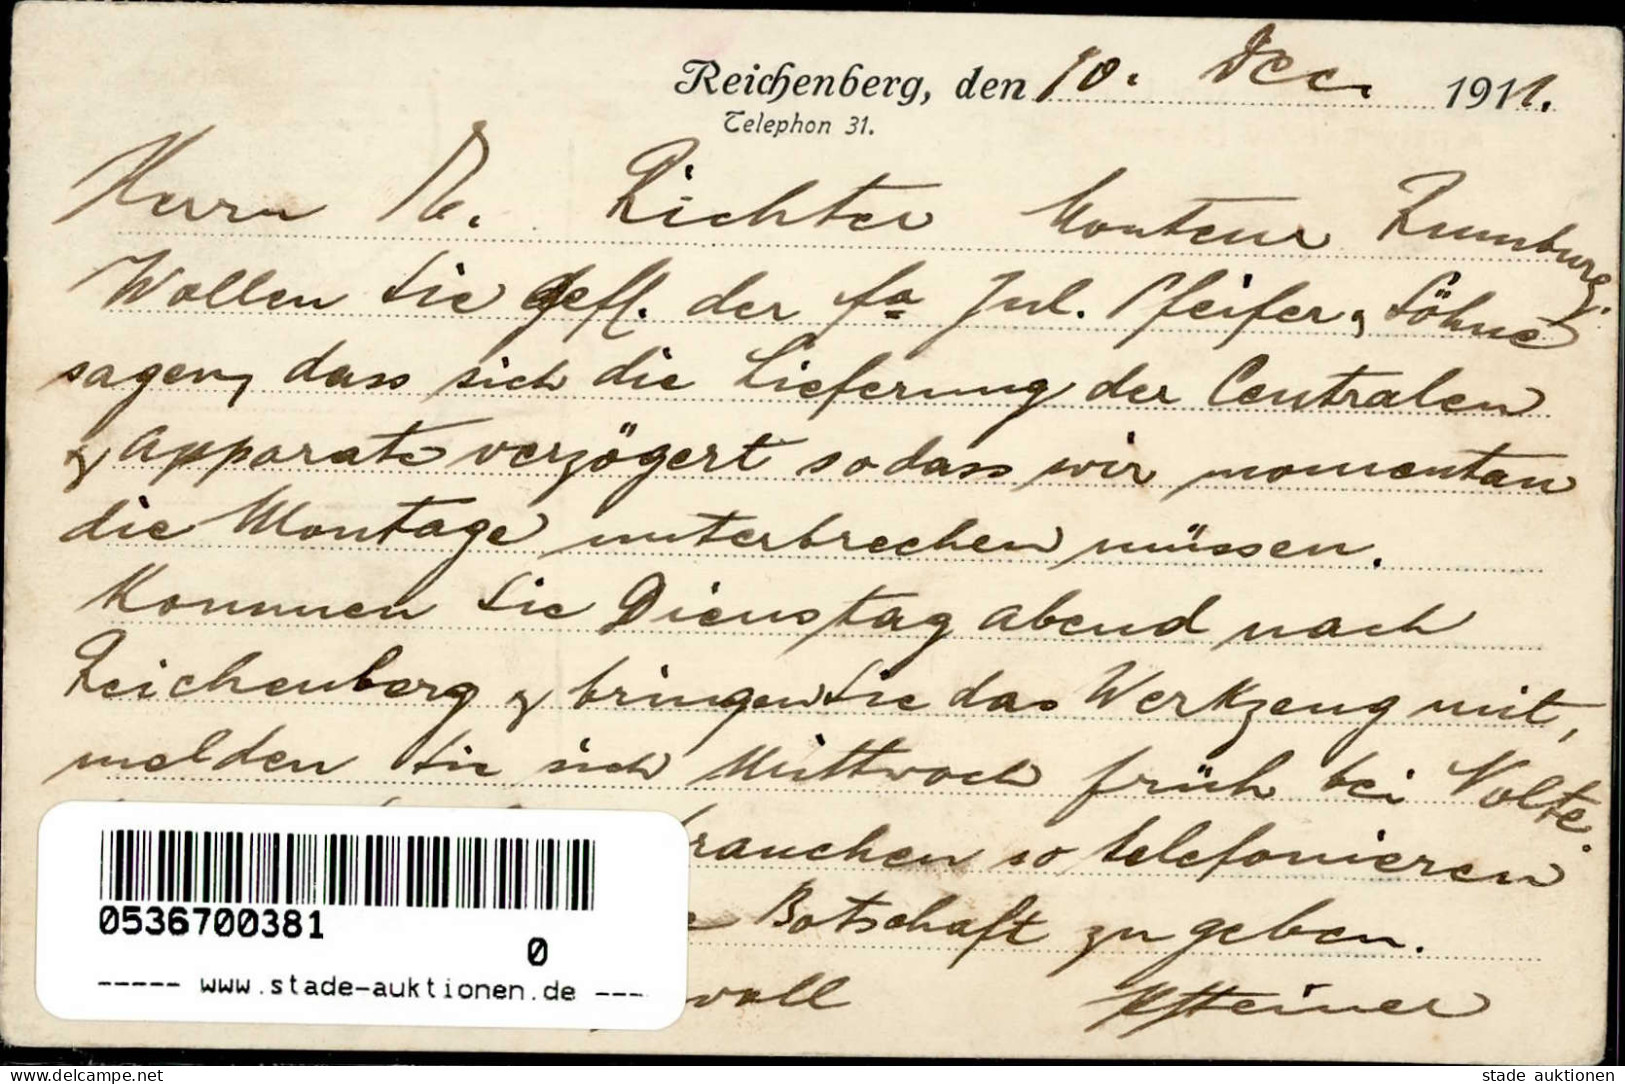 Reichenberg, den 10. Dec. 1911.
Telephon 31.
Herrn Richter Monteur Rumburg.
Wollen Sie gefl. der Fa Jul. Pfeifer & Söhne
sagen, dass sich die Lieferung der Centralen
& Apparate verzögert sodass wir momentan
die Montage unterbrechen müssen.
Kommen Sie Dienstag abend nach
Reichenberg & bringen Sie das Werkzeug mit,
melden Sie sich Mittwoch früh bei Nolte.
rauchen so telefonieren
Botschaft zu geben.
voll
0536700381
0
----- www.stade-auktionen.de ---
www.delcampe.net
stade auktionen